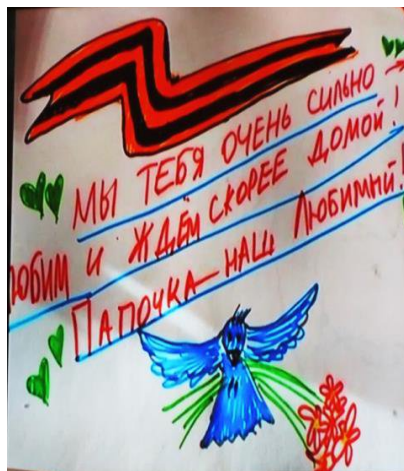 МЫ ТЕБЯ ОЧЕНЬ СИЛЬНО
ЮБИМ И ЖДЁМ СКОРЕЕ ДОМОЙ!
ПАПОЧКА НАШ ЛЮБИМЫЙ!